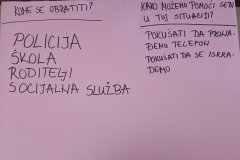 KOME SE OBRATITI?
POLICIJA
ŠKOLA
RODITELJI
SOCIJALNA SLUŽBA
KAKO MOŽEMO POMOĆI
U TOJ SITUACIJI?
POKUŠATI DA PRONA-
ĐEMO TELEFON
POKUŠATI DA SE ISKRA-
DEMO